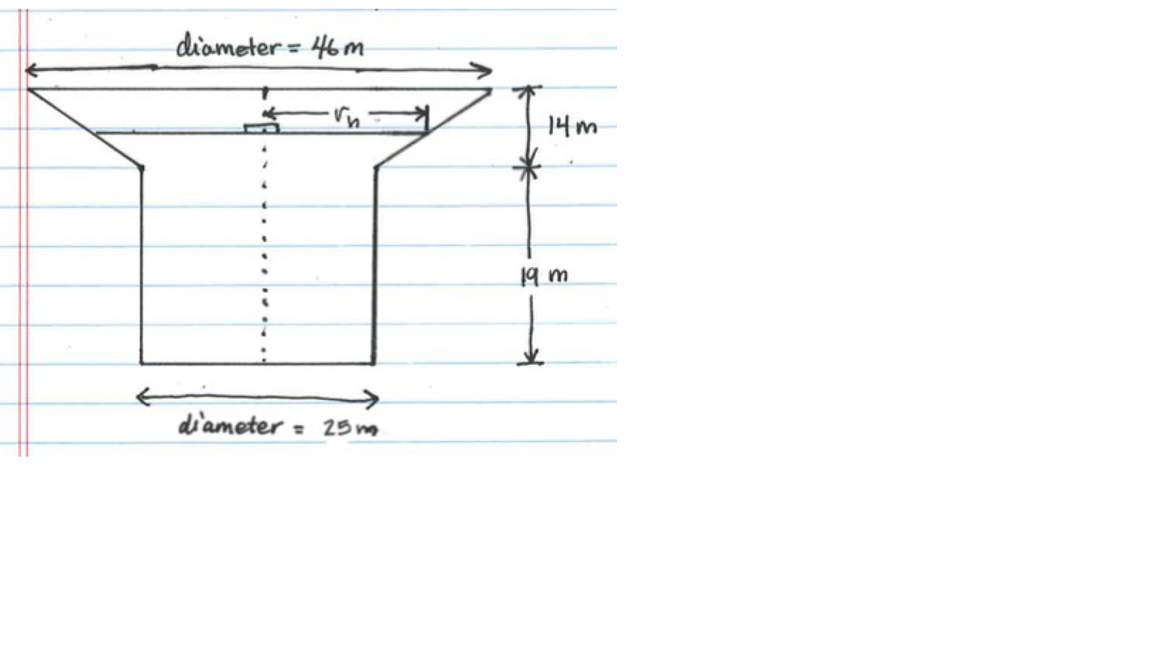 diameter = 46 m
rh
14 m
19 m
diameter = 25 m